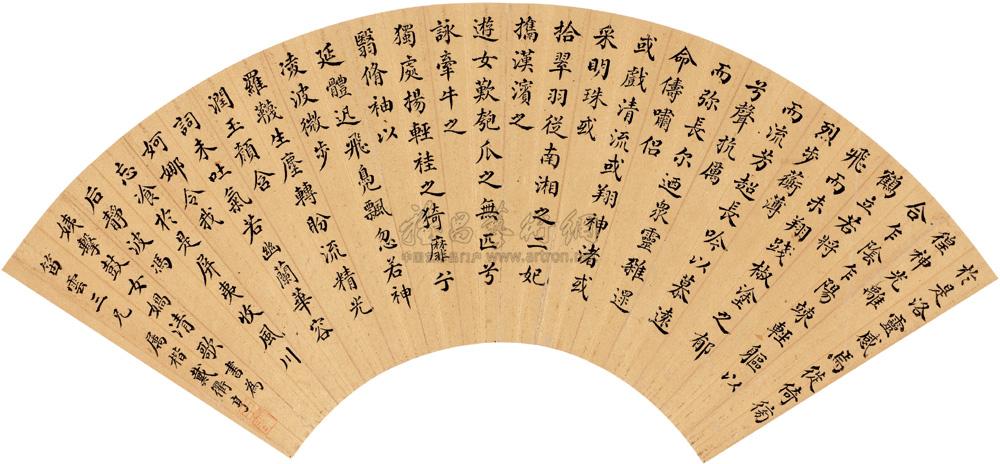 於是洛靈感焉徙倚徬
徨神光離
合乍陰乍陽竦輕軀以
鶴立若將
飛而未翔踐椒塗之郁
烈步蘅薄
而流芳超長吟以慕遠
兮聲抗厲
而弥長尔迺眾靈雜遝
命儔嘯侶
或戲清流或翔神渚或
采明珠或
拾翠羽從南湘之二妃
攜漢濱之
遊女歎匏瓜之無匹兮
詠牽牛之
獨處揚輕袿之猗靡兮
翳脩袖以
延體迅飛鳧飄忽若神
凌波微步
羅韈生塵轉盼流精光
潤玉顏含
詞未吐氣若幽蘭華容
婀娜令我
忘飡於是屏夷收風川
后靜波馮
姨擊鼓女媧清歌書為
笛雲三兄屬楷戴衢亨
www.artron.net